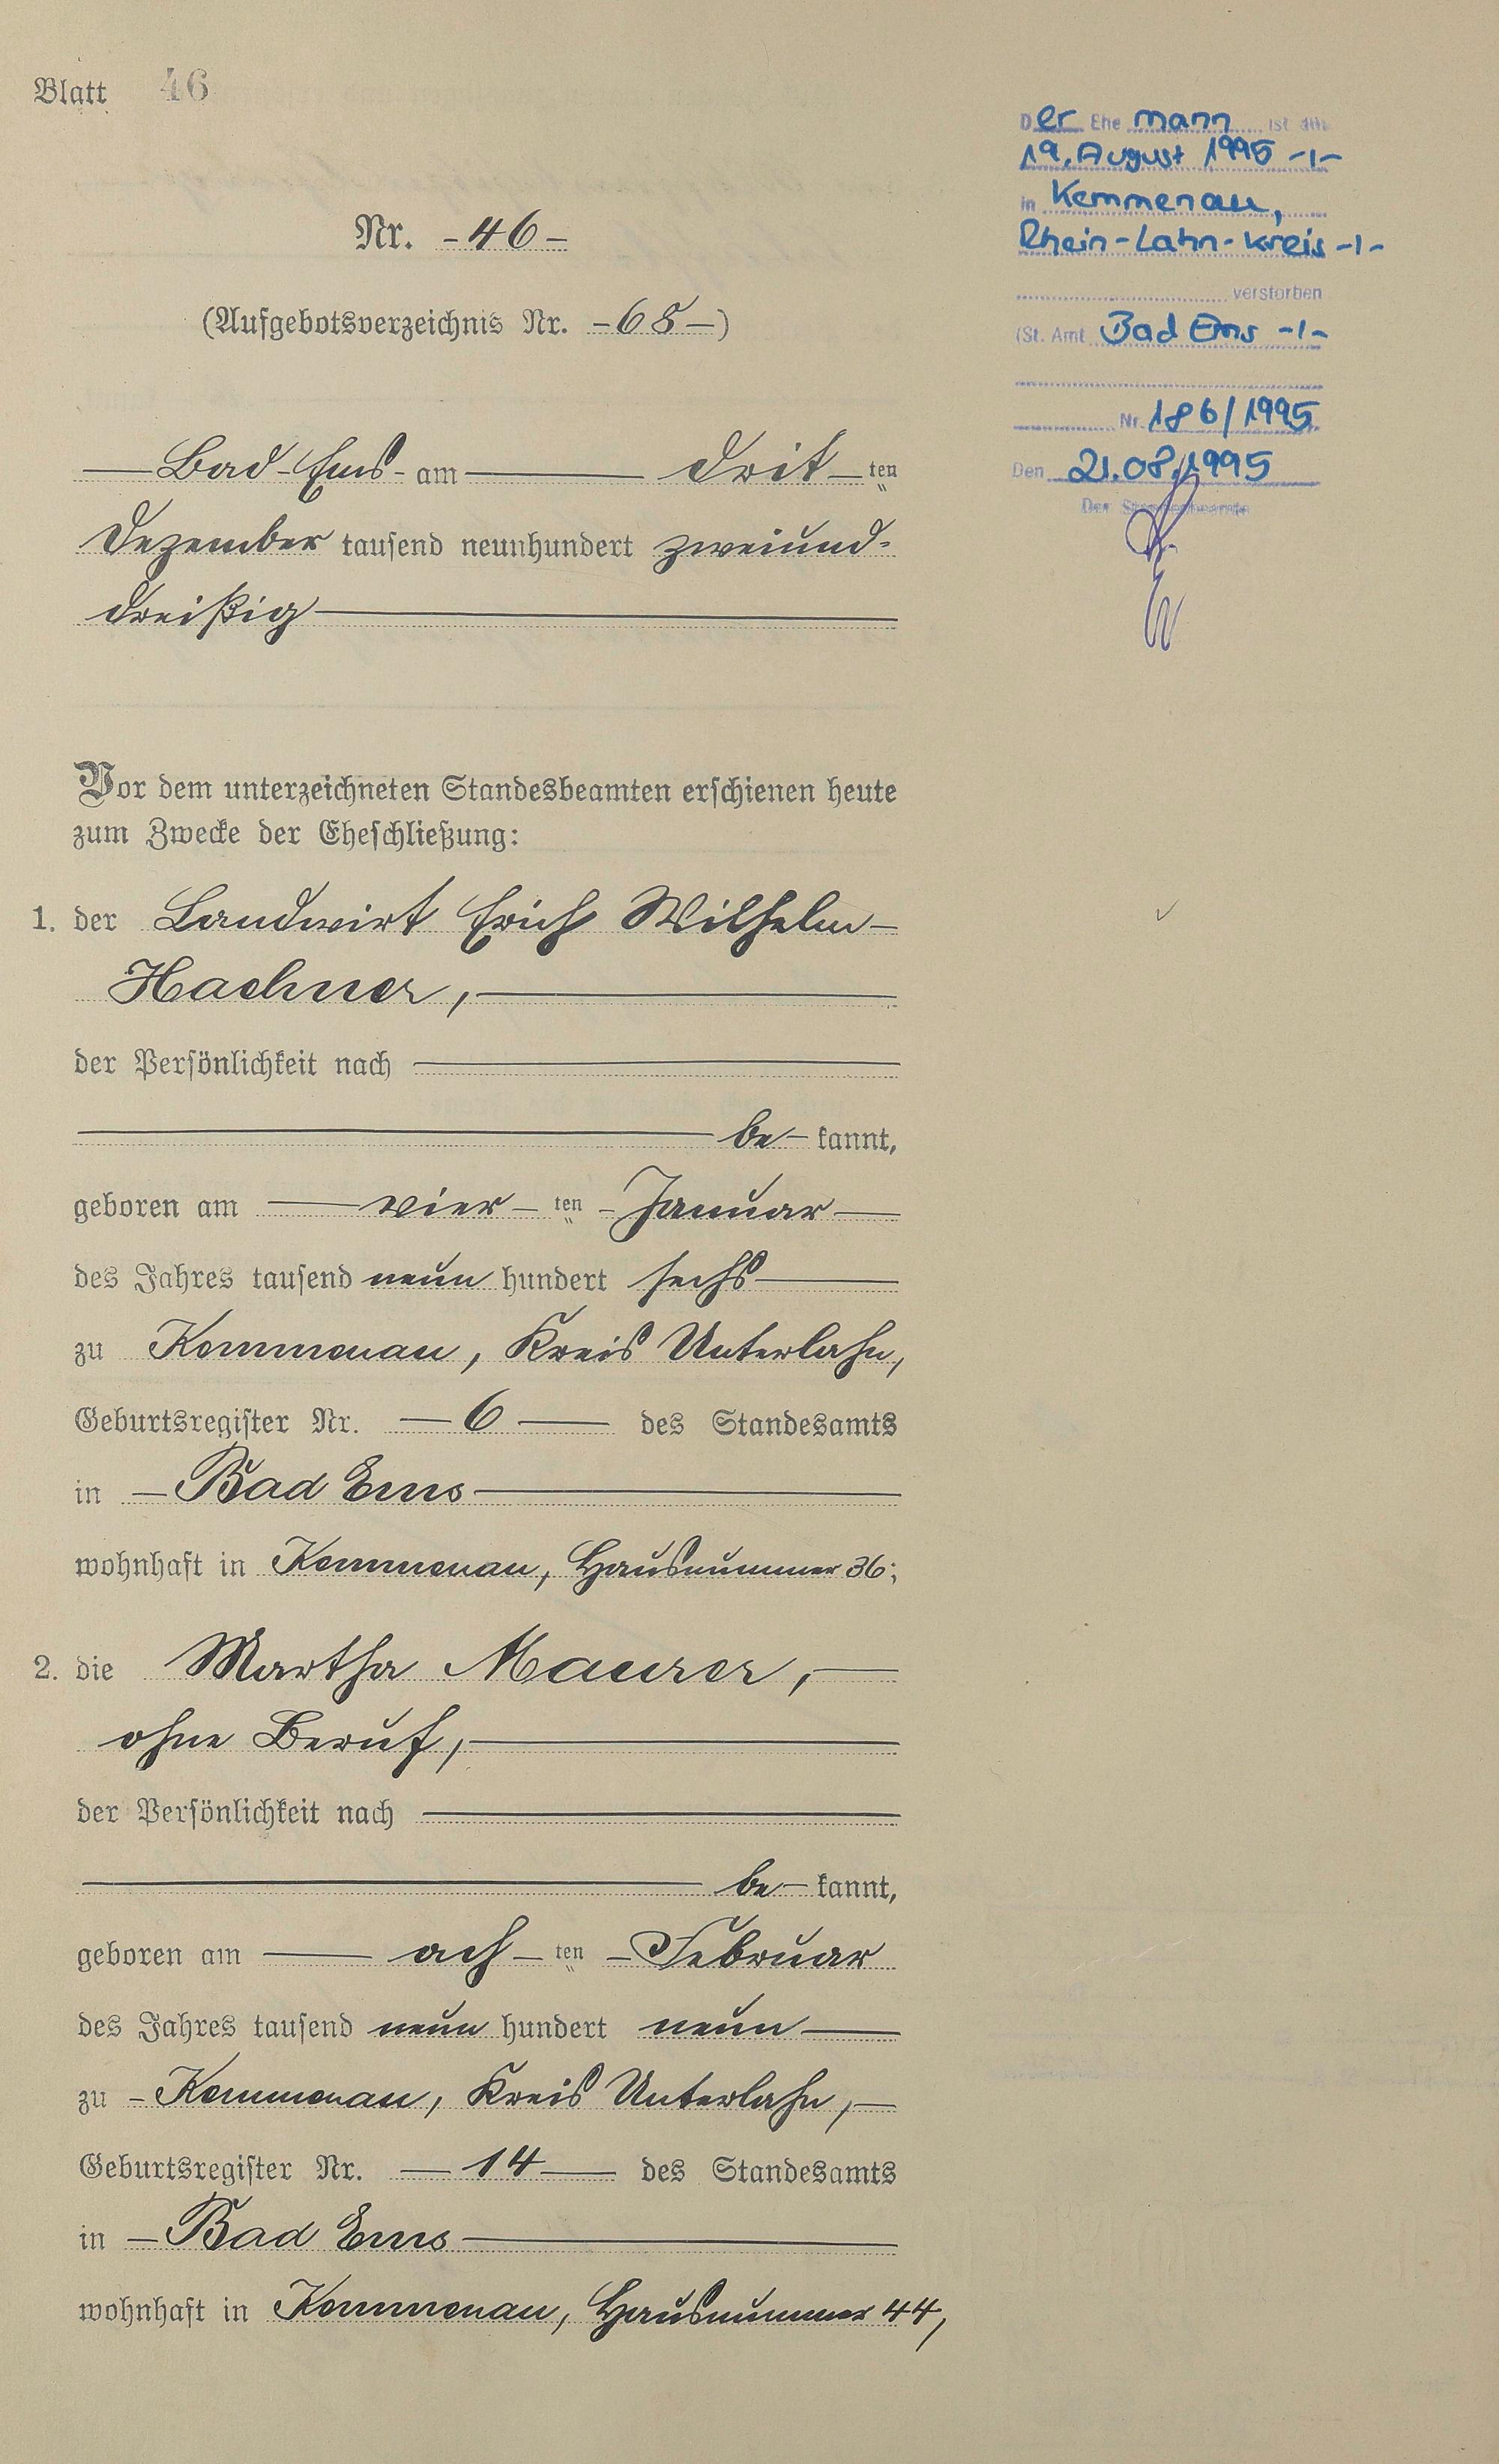 Blatt 46
Nr. -46-
(Aufgebotsverzeichnis Nr. -68-)
Bad-Ems- am dritten
Dezember tausend neunhundert zweiund-
dreißig
Vor dem unterzeichneten Standesbeamten erschienen heute
zum Zwecke der Eheschließung:
1. der Landwirt Erich Wilhelm
Hachner,
der Persönlichkeit nach
be- kannt,
geboren am vier-ten Januar
des Jahres tausend neun hundert sechs
zu Kemmenau, Kreis Unterlahn,
Geburtsregister Nr. 6 des Standesamts
in Bad Ems
wohnhaft in Kemmenau, Hausnummer 36;
2. die Martha Maurer,
ohne Beruf,
der Persönlichkeit nach
be- kannt,
geboren am ach-ten Februar
des Jahres tausend neun hundert neun
zu Kemmenau, Kreis Unterlahn,
Geburtsregister Nr. 14 des Standesamts
in Bad Ems
wohnhaft in Kemmenau, Hausnummer 44,
Der Ehe mann ist am
19. August 1995 -/-
in Kemmenau,
Rhein-Lahn-Kreis -/-
verstorben
(St. Amt Bad Ems -/-
Nr. 186/1995
Den 21.08.1995
Der Standesbeamte